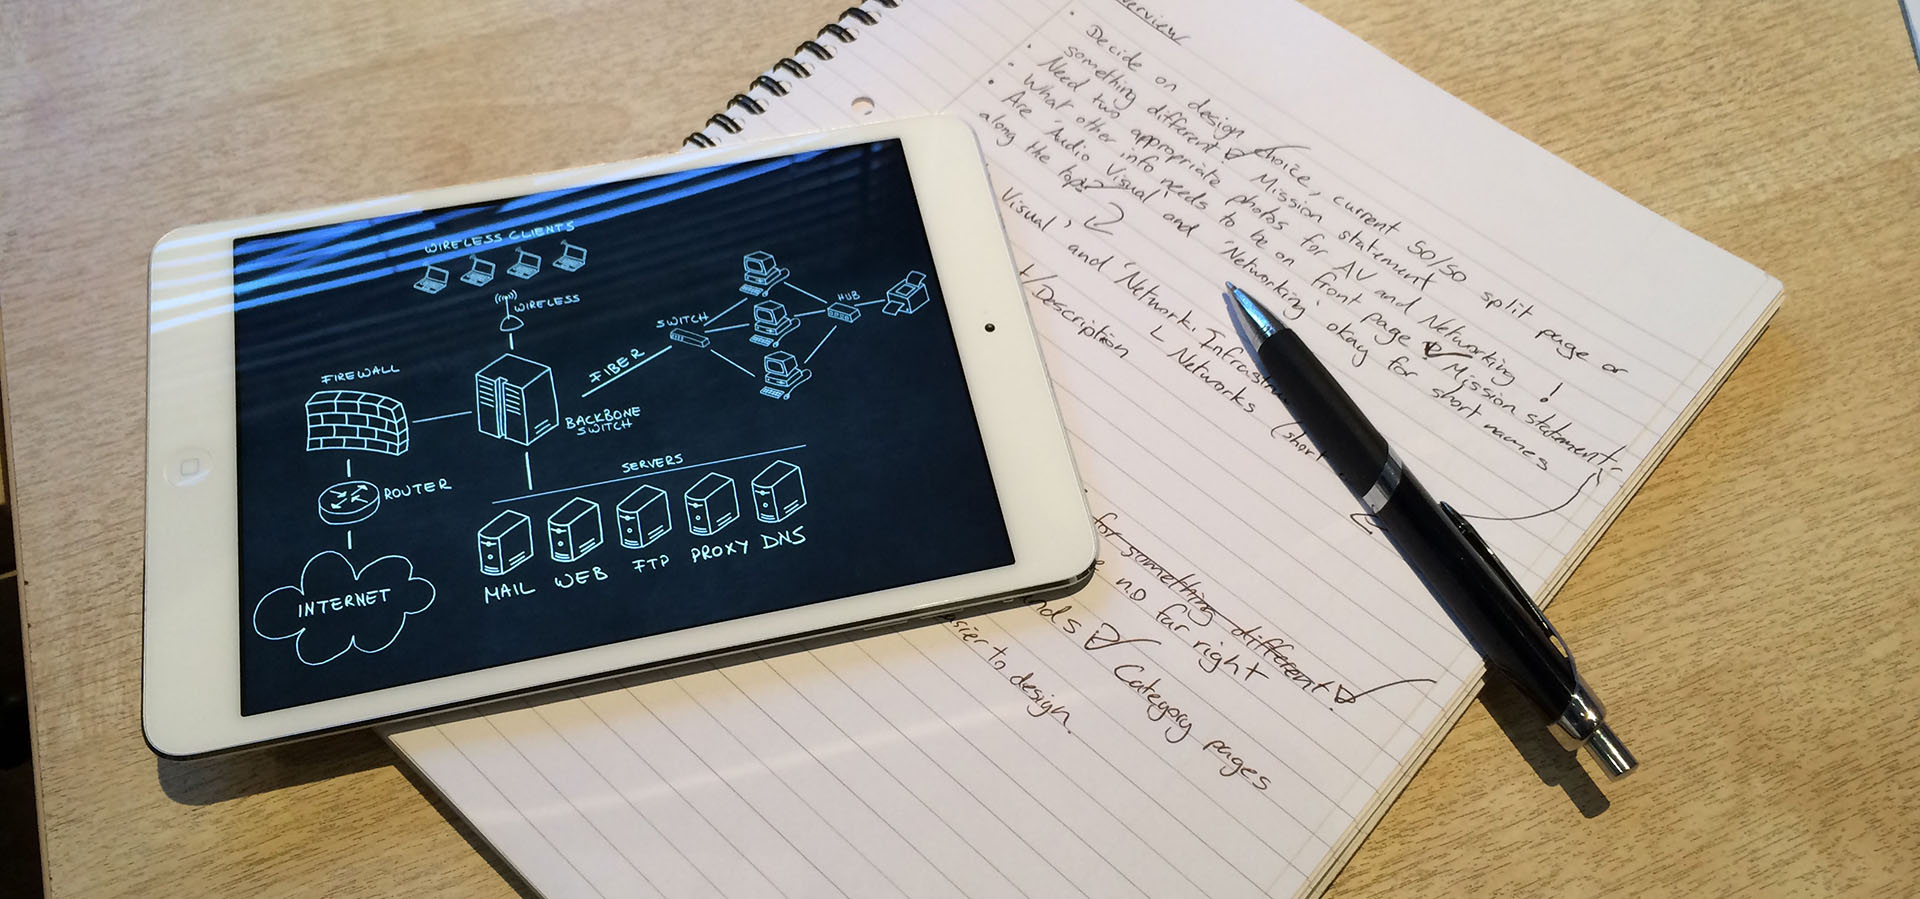 WIRELESS CLIENTS
WIRELESS
SWITCH
HUB
FIBER
FIREWALL
BACKBONE
SWITCH
ROUTER
SERVERS
INTERNET
MAIL
WEB
FTP
PROXY
DNS
Decide on design choice, current 50/50 split page or
something different? Mission statement
Need two appropriate photos for AV and Networking!
What other info needs to be on front page? Mission statement
Are 'Audio Visual' and 'Networking' okay for short names
along the top?
Visual' and 'Network Infrastru
Description
Networks (short
for something different?
n.o far right
Category pages
to design